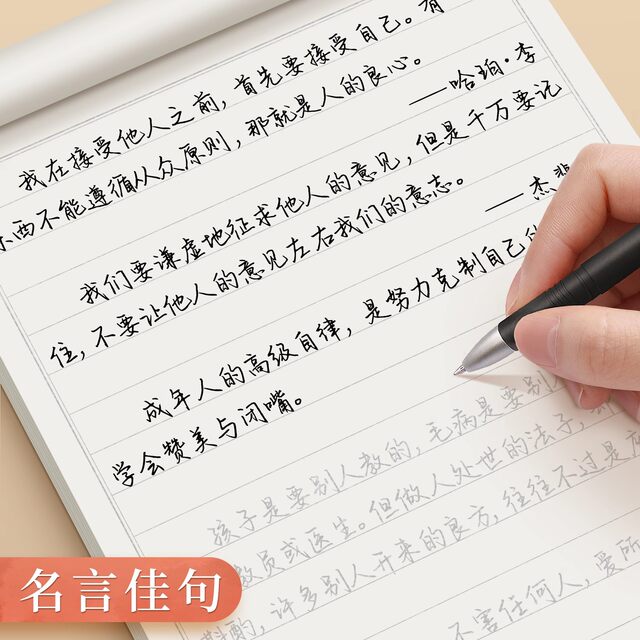 我在接受他人之前，首先要接受自己。有
东西不能遵循从众原则，那就是人的良心。
——哈珀·李
我们要谦虚地征求他人的意见，但是千万要记
住，不要让他人的意见左右我们的意志。
——杰斐
成年人的高级自律，是努力克制自己的
学会赞美与闭嘴。
孩子是要别人教的，毛病是要别人
教员或医生。但做人处世的法子，却
斟酌，许多别人开来的良方，往往不过是废
不害任何人，爱所
名言佳句